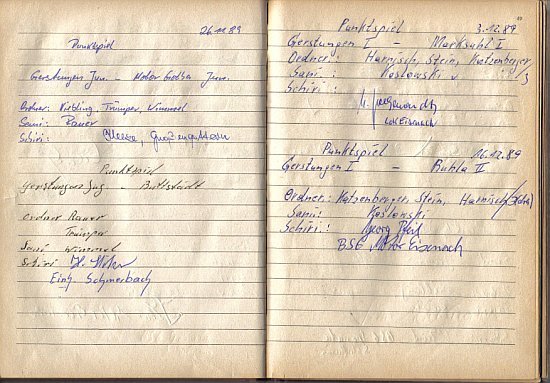 26.11.89
Punktspiel
Gerstungen Jun. - Motor Gotha Jun.
Ordner: Niebling, Trümper, Wimmel
Sani: Rauer
Schiri:
Punktspiel
Gerstungen Jug - Buttstädt
Ordner Rauer
Trümper
Sani Wimmel
Schiri
Einh. Schmerbach
Punktspiel 3.12.89
Gerstungen I - Marksuhl I
Ordner: Harnisch, Stein, Katzenberger
Sani: Koslowski
Schiri:
Lok Eisenach
Punktspiel 16.12.89
Gerstungen I - Ruhla II
Ordner: Katzenberger, Stein, Harnisch
Sani: Koslowski
Schiri: Georg
BSG Motor Eisenach